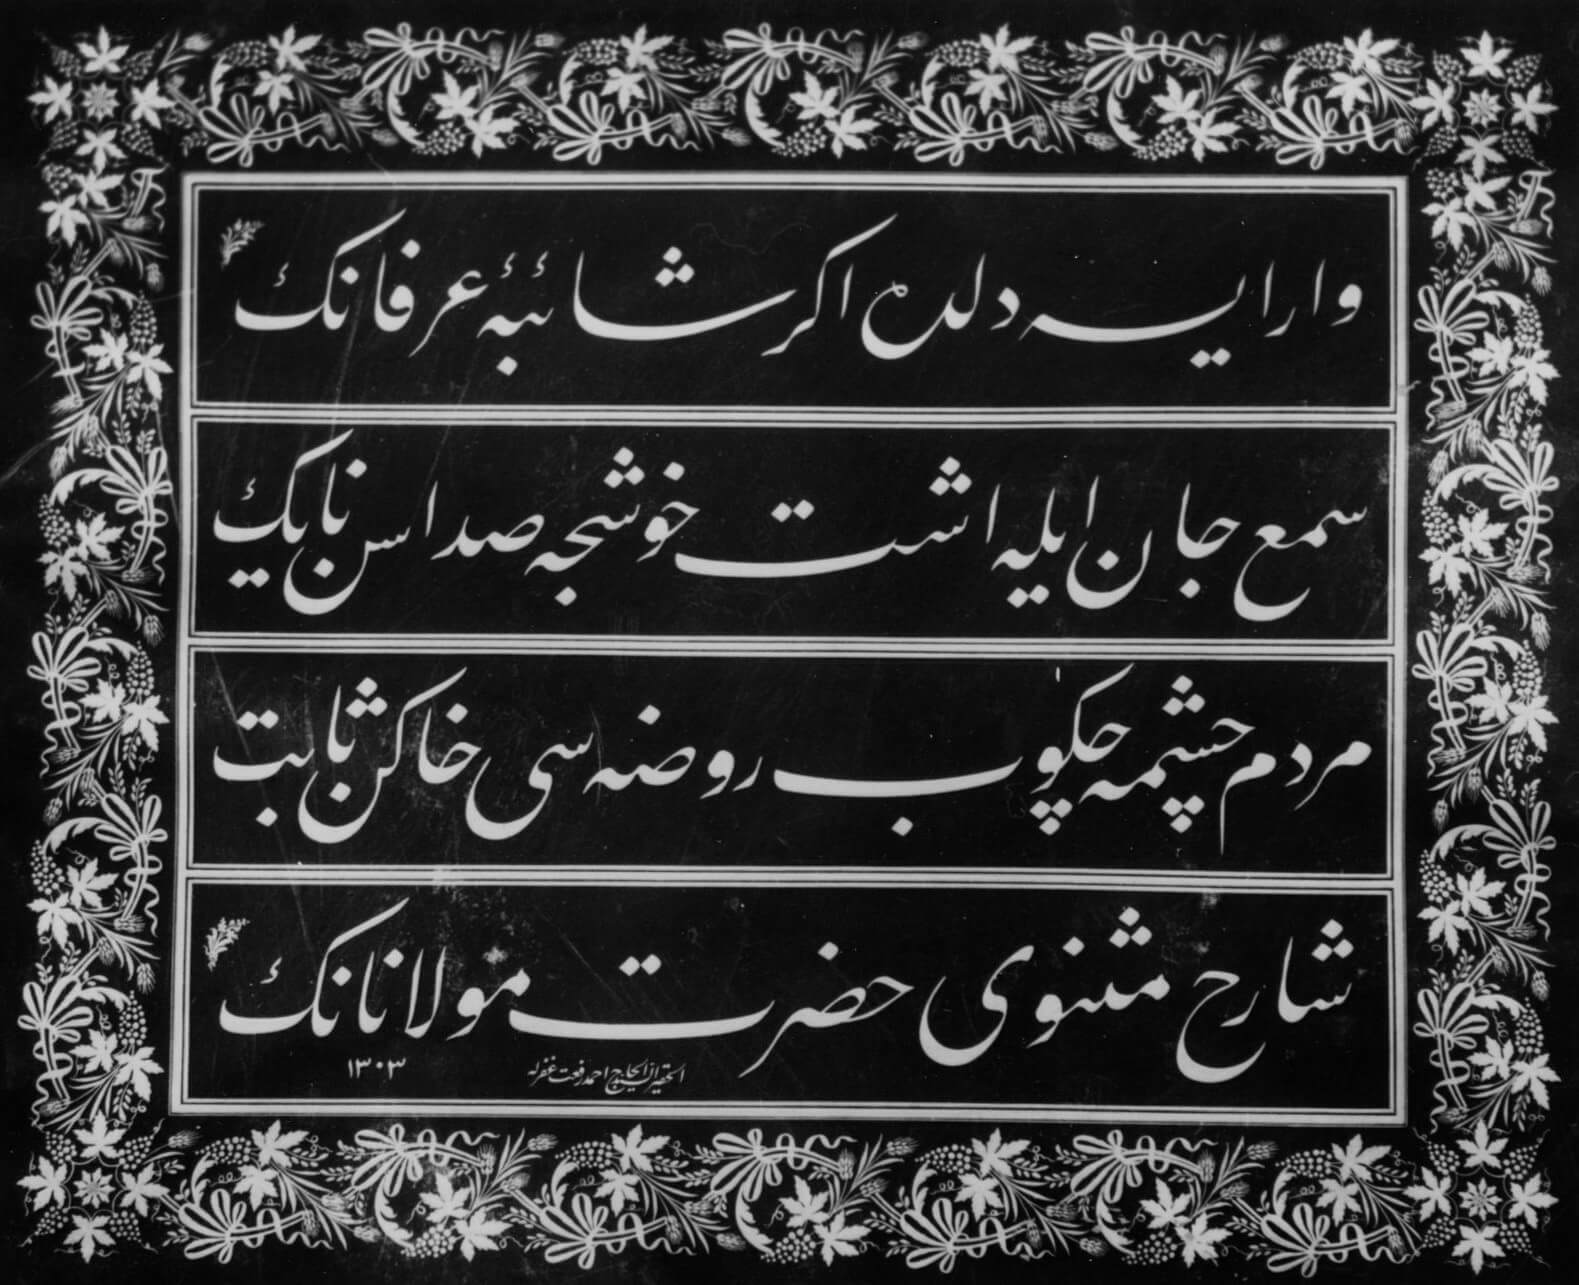 وار ایسه دلده اکر شائبهٔ عرفانڭ
سمع جان ایله اشت خوشجه صداسن نایڭ
مردم چشمه چکوب روضه سی خاکن ثابت
شارح مثنوی حضرت مولانانڭ
الحاج احمد رفعت غفرله
١٣٠٣